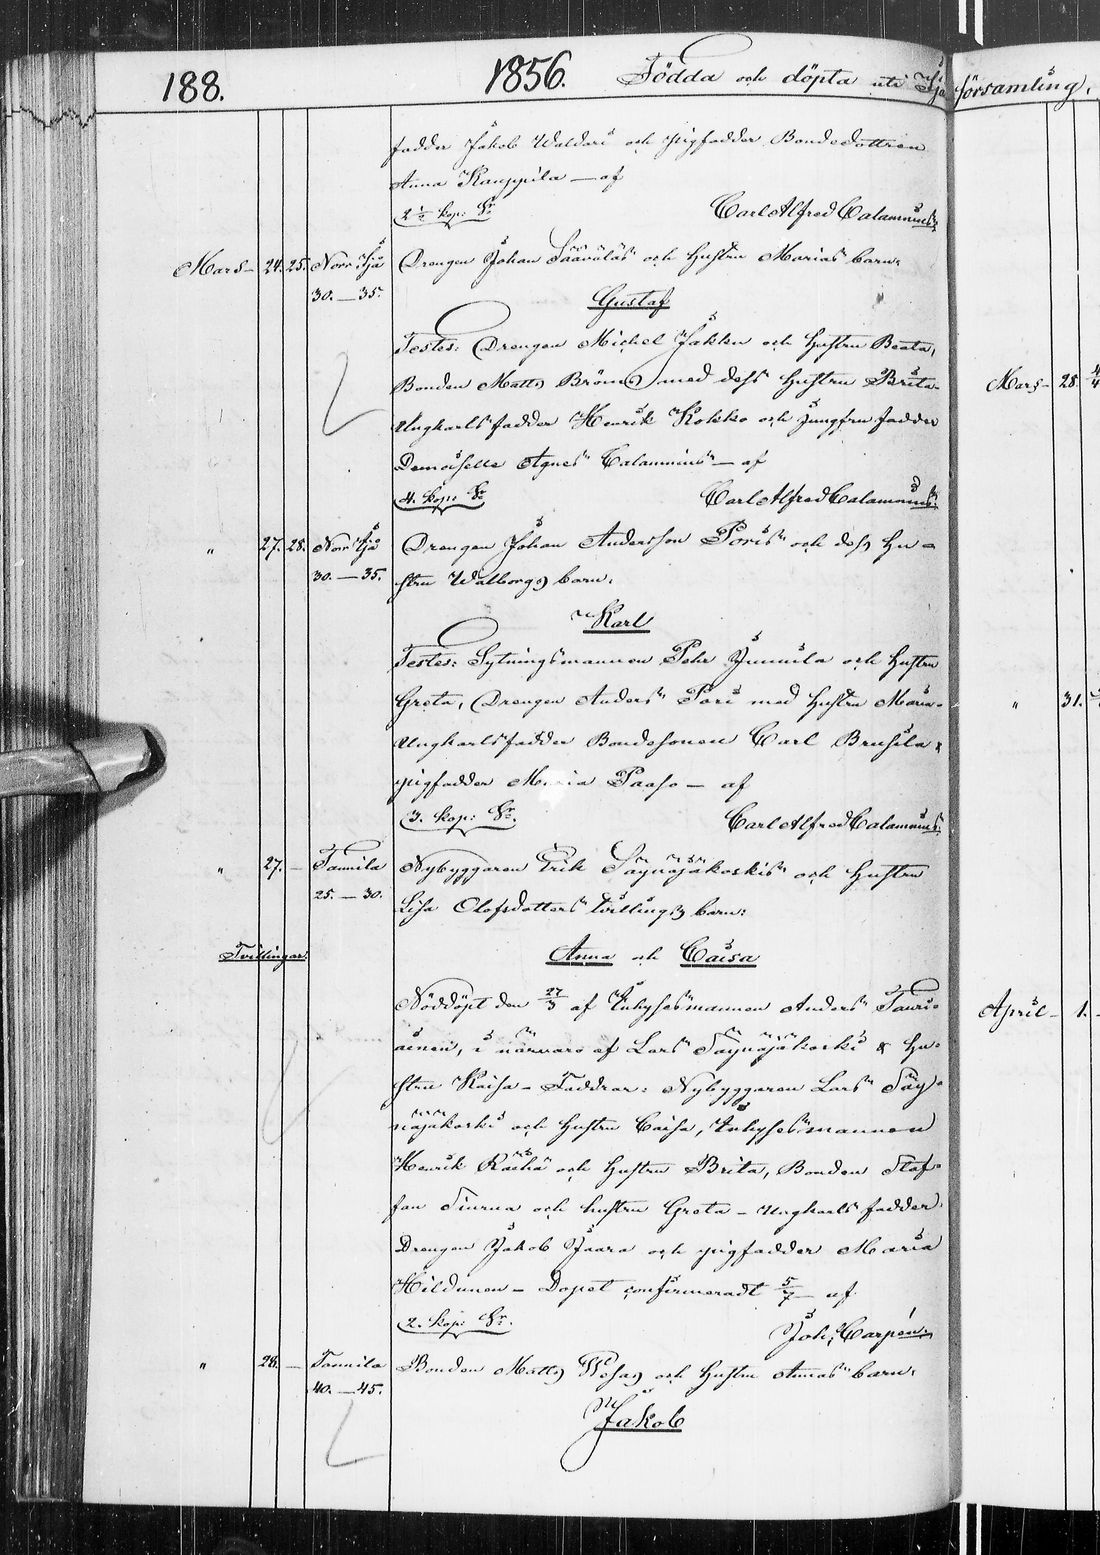 188. 1856. Födda och döpta uti Ijo församling,
fadder Jakob Waldari och pigfadder Bondedottren
Anna Kauppila — af
2 ½ kop: Sr Carl Alfred Calamnius.
Mars 24. 25. Norr Ijå Drengen Johan Sääväläs och hustru Marias barn:
30. — 35. Gustaf
Testes: Drengen Michel Jakku och hustru Beata,
Bonden Matts med dess hustru Brita
Ungkarlsfadder Henrik Kokko och jungfrufadder
Demoiselle Agnes Calamnius — af
4. kop: Sr Carl Alfred Calamnius.
" 27. 28. Norr Ijå Drengen Johan Andersson Poris och dess hu-
30. — 35. stru Walborgs barn:
Karl
Testes: Sytningsmannen Pehr Junnila och hustru
Greta, Drengen Anders Pori med hustru Maria
Ungkarlsfadder Bondesonen Carl Brusila &
pigfadder Maria Paaso — af
3. kop: Sr. Carl Alfred Calamnius.
" 27. — Tannila Nybyggaren Erik Säynäjäkoskis och hustru
25. — 30. Lisa Olofsdotters tvillings barn:
Tvillingar. Anna och Caisa
Nöddöpt den 27/3 af Inhysesmannen Anders Tauri-
ainen, i närvaro af Lars Säynäjäkoski & hu-
stru Kaisa — Faddrar: Nybyggaren Lars Säy-
näjäkoski och hustru Caisa, Inhysesmannen
Henrik Räihä och hustru Brita, Bonden Staf-
fan Tiurna och hustru Greta — Ungkarlsfadder
Drengen Jakob Jaara och pigfadder Maria
Hildunen — Dopet confirmeradt 5/7 af
2. kop: Sr. Joh. Carpén.
" 28. — Tannila Bonden Matts och hustru Annas barn:
40. — 45.
Jakob
Mars — 28.
" 31.
April — 1.